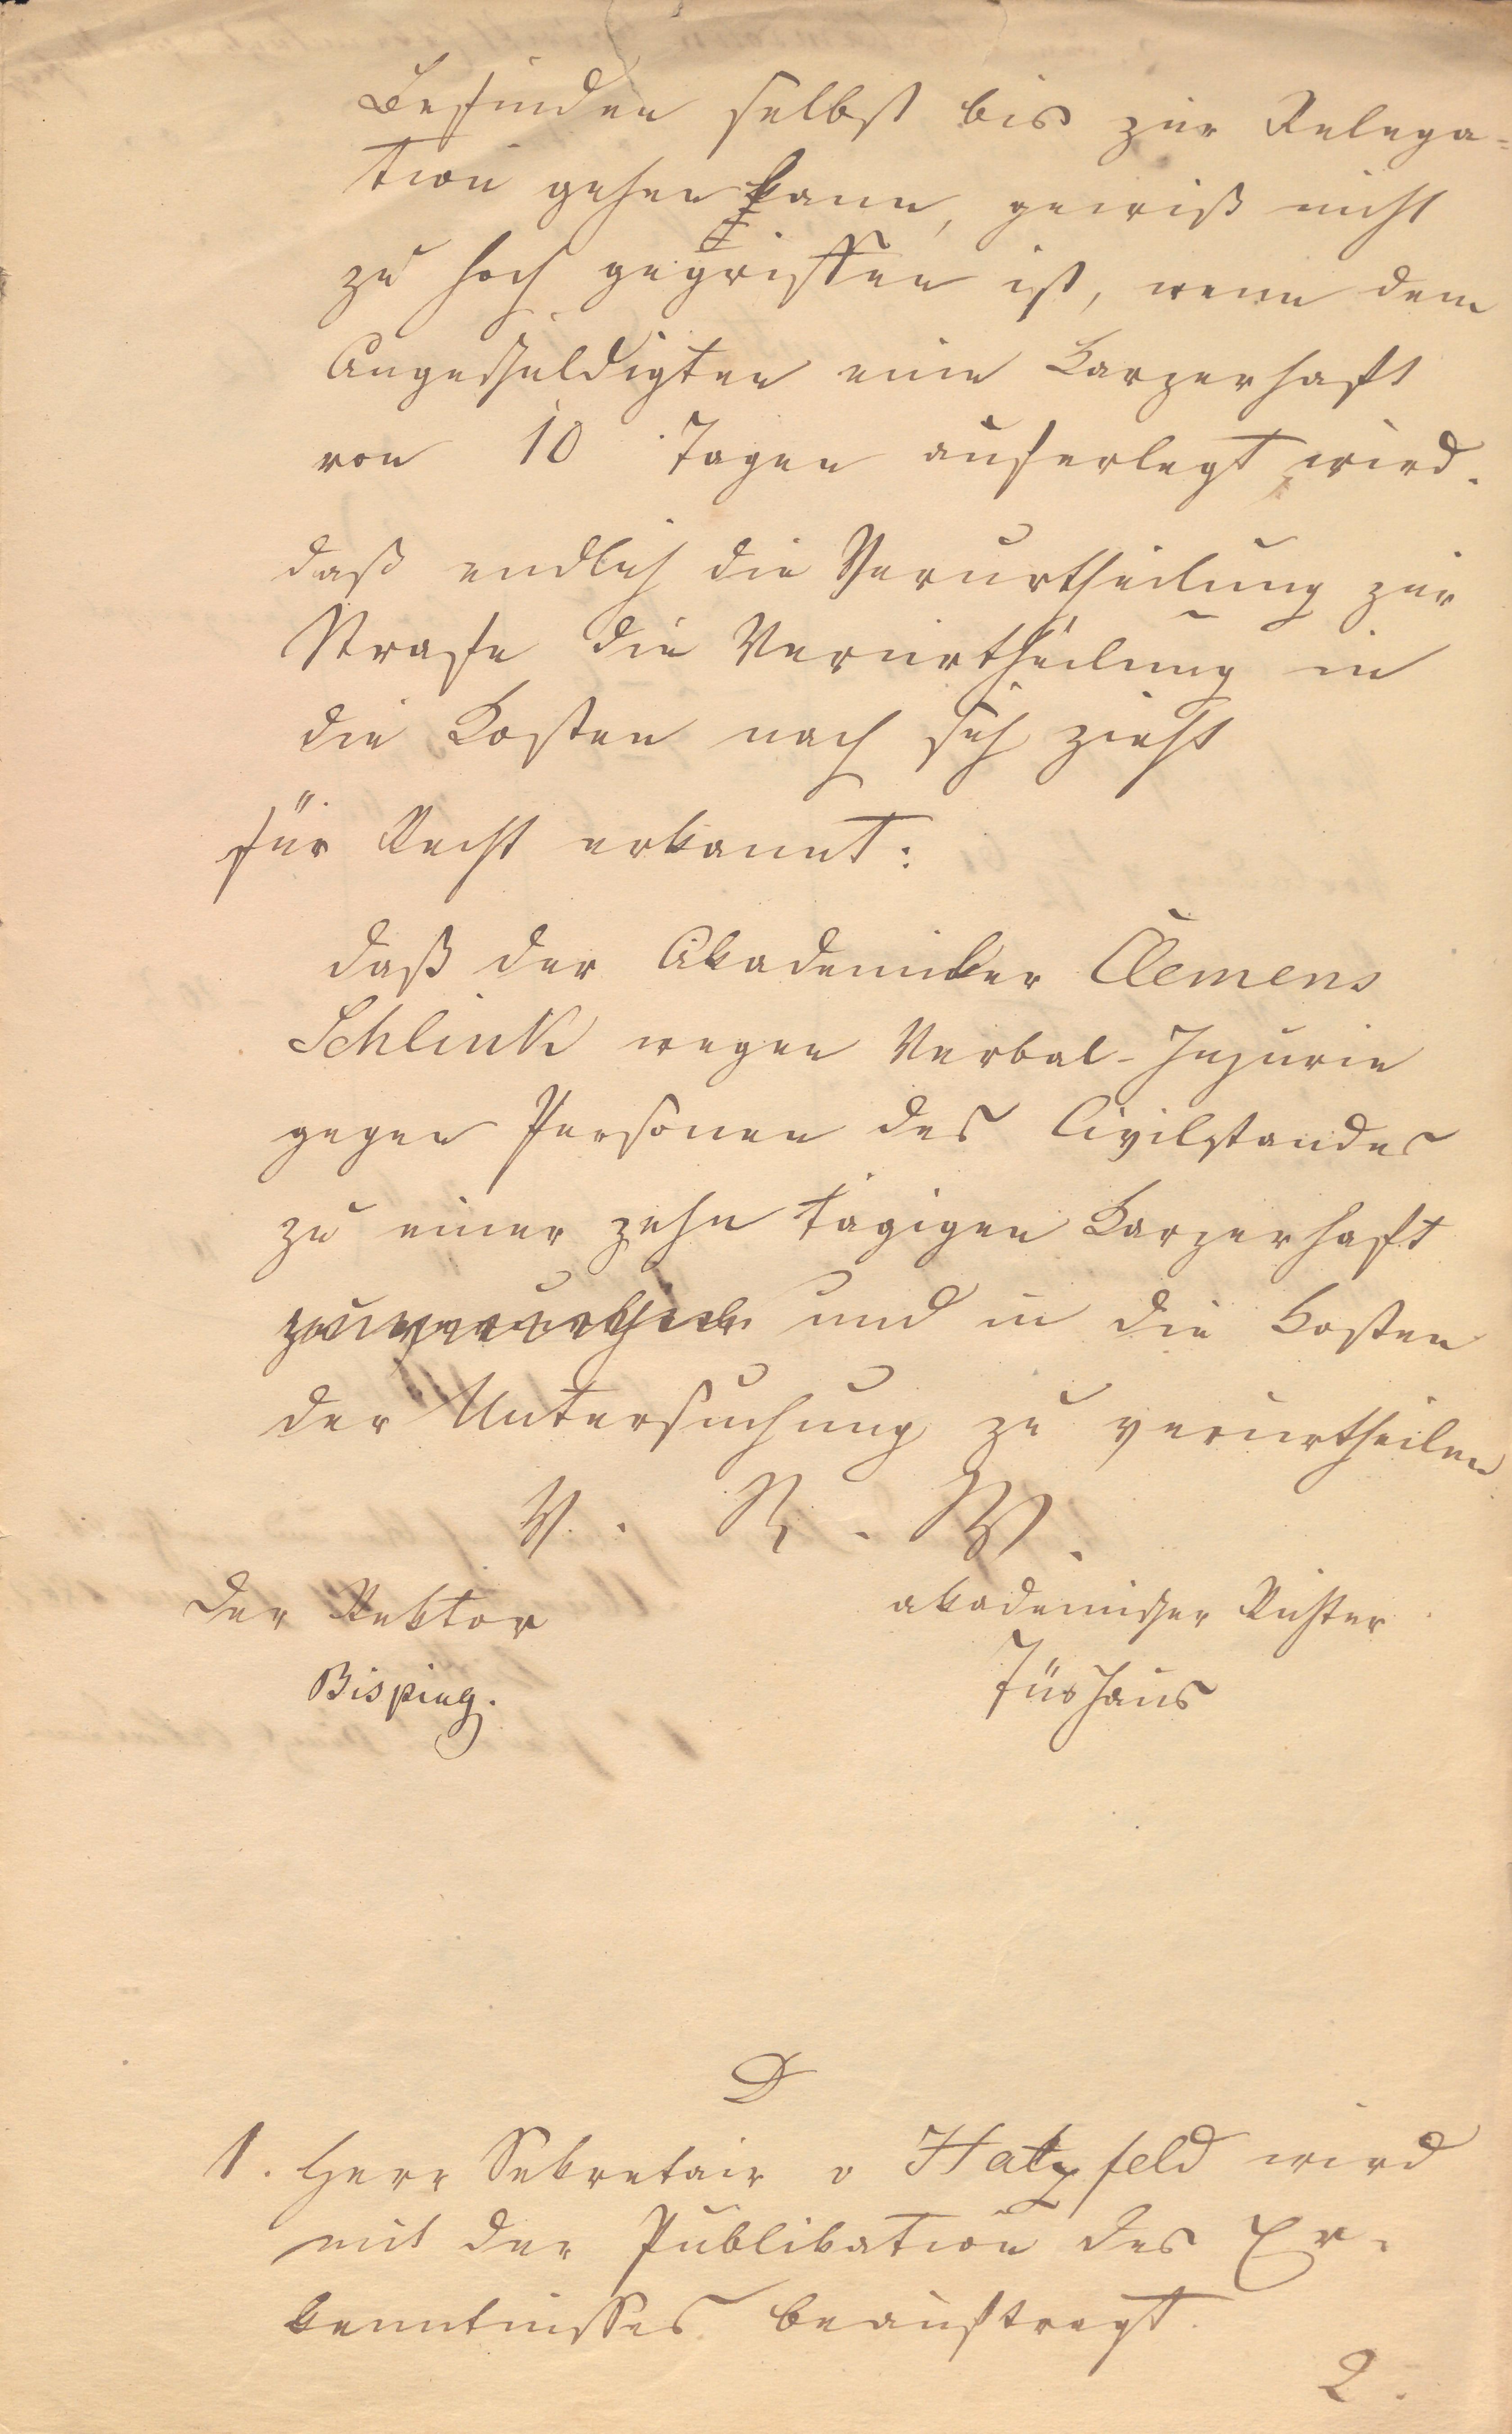 Befinden selbst bis zur Relega=
tion gehen kann, gewiß nicht
zu hoch gegriffen ist, wenn dem
Angeschuldigten eine Karzerhaft
von 10 Tagen auferlegt wird.
daß endlich die Verurtheilung zur
Strafe die Verurtheilung in
die Kosten nach sich zieht
für Recht erkannt:
daß der Akademiker Clemens
Schlink wegen Verbal-Injurie
gegen Personen des Civilstandes
zu einer zehn tägigen Karzerhaft
und in die Kosten
der Untersuchung zu verurtheilen
V. R. W.
Der Rektor
akademischer Richter
Bisping.
D
1. Herr Sekretair v Hatzfeld wird
mit der Publikation des Er-
kenntnisses beauftragt.
2.